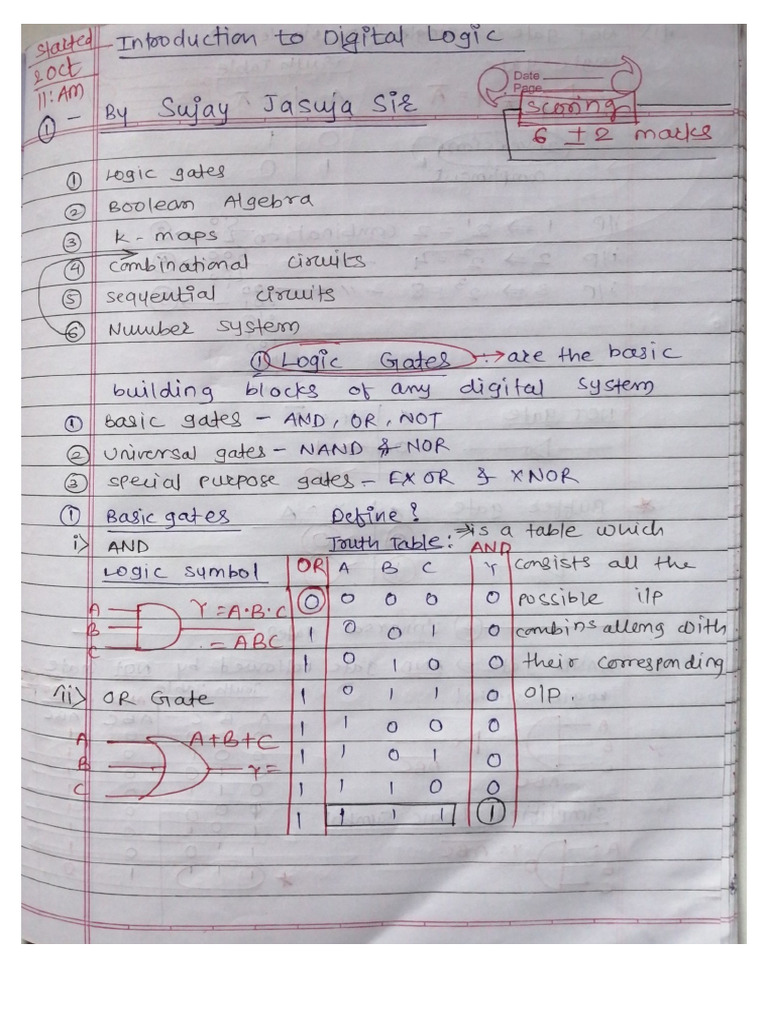 started
2 Oct
11:AM
Introduction to Digital Logic
Date
Page
① - By Sujay Jasuja Sir
scoring
6 ± 2 marks
① Logic gates
② Boolean Algebra
③ K-maps
④ Combinational circuits
⑤ seqyential circuits
⑥ Number system
① Logic Gates → are the basic
building blocks of any digital system
① Basic gates - AND, OR, NOT
② Universal gates - NAND & NOR
③ special purpose gates - EXOR & XNOR
① Basic gates Define?
i> AND Truth Table: ⇒ is a table which
Logic symbol OR A B C AND Y consists all the
0 0 0 0 0 possible i/p
A B C Y = A·B·C
1 0 0 1 0 combins alleng with
= ABC
1 0 1 0 0 their corresponding
ii> OR Gate 1 0 1 1 0 o/p.
1 1 0 0 0
A B C A+B+C
1 1 0 1 0
Y =
1 1 1 0 0
1 1 1 1 1